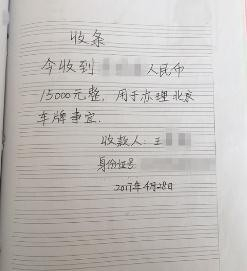 收条
今收到 人民币
15000元整，用于办理北京
车牌事宜.
收款人：王
身份证号
2017年4月28日